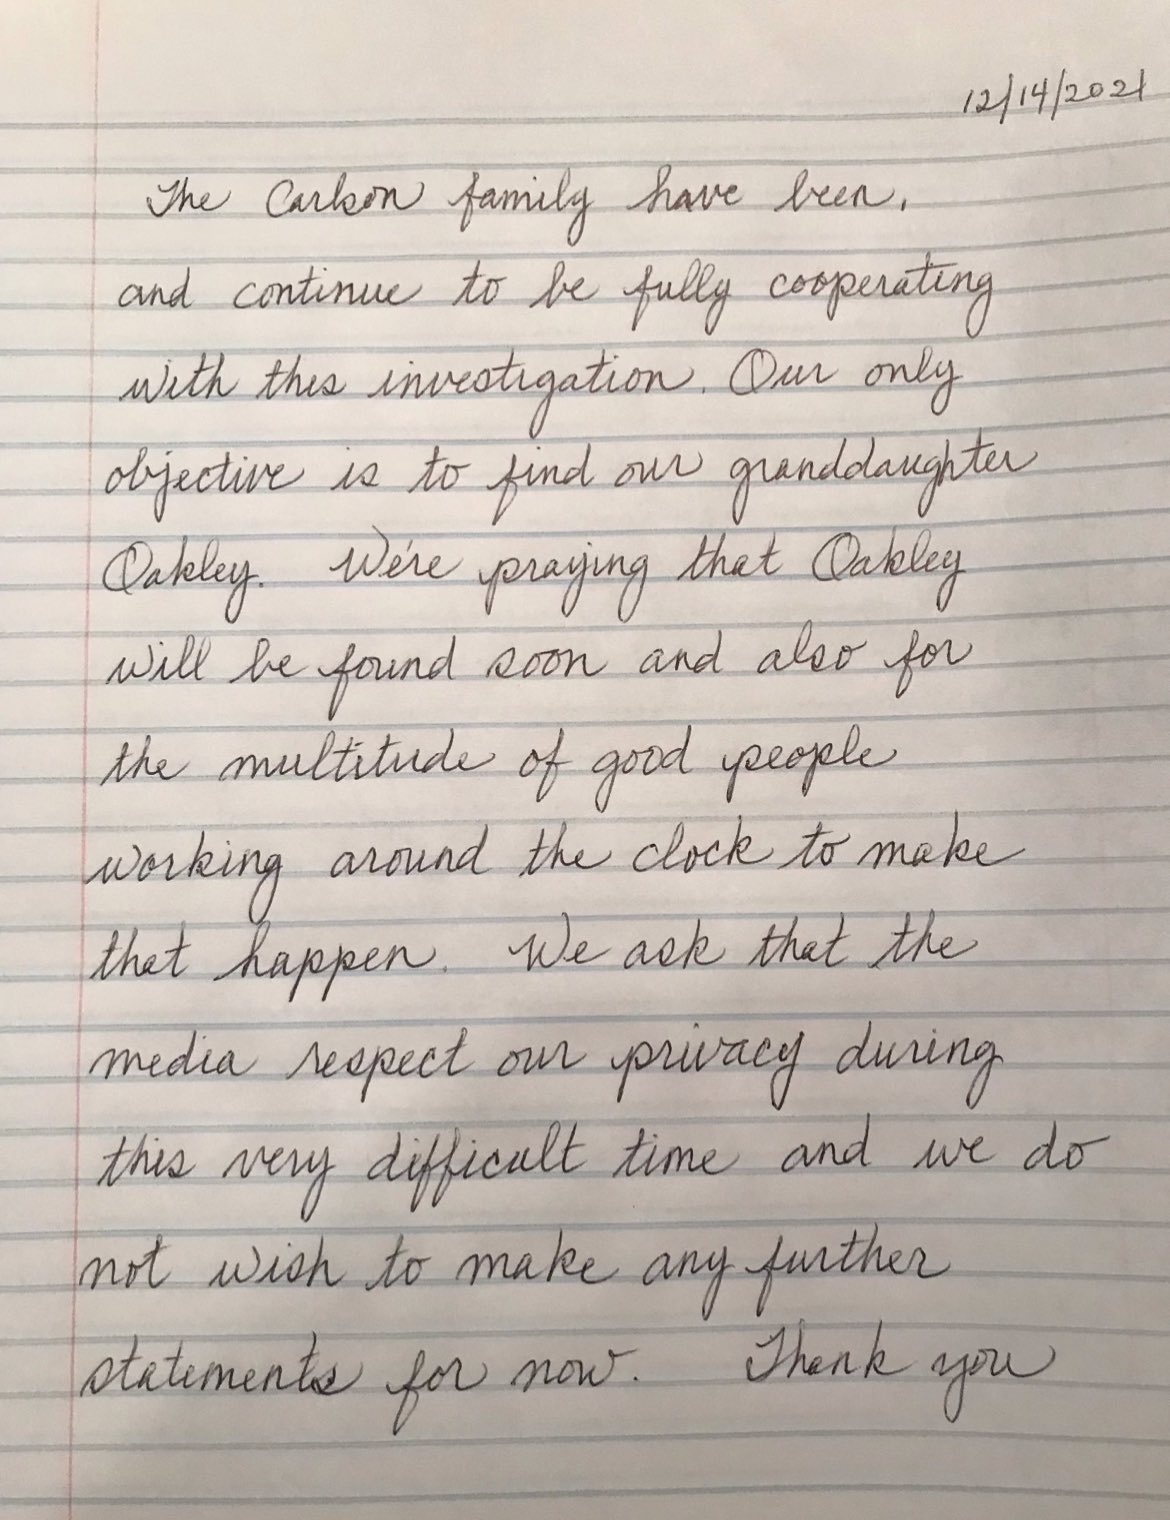 12/14/2021
The Carlson family have been,
and continue to be fully cooperating
with this investigation. Our only
objective is to find our granddaughter
Oakley. We're praying that Oakley
will be found soon and also for
the multitude of good people
working around the clock to make
that happen. We ask that the
media respect our privacy during
this very difficult time and we do
not wish to make any further
statements for now. Thank you